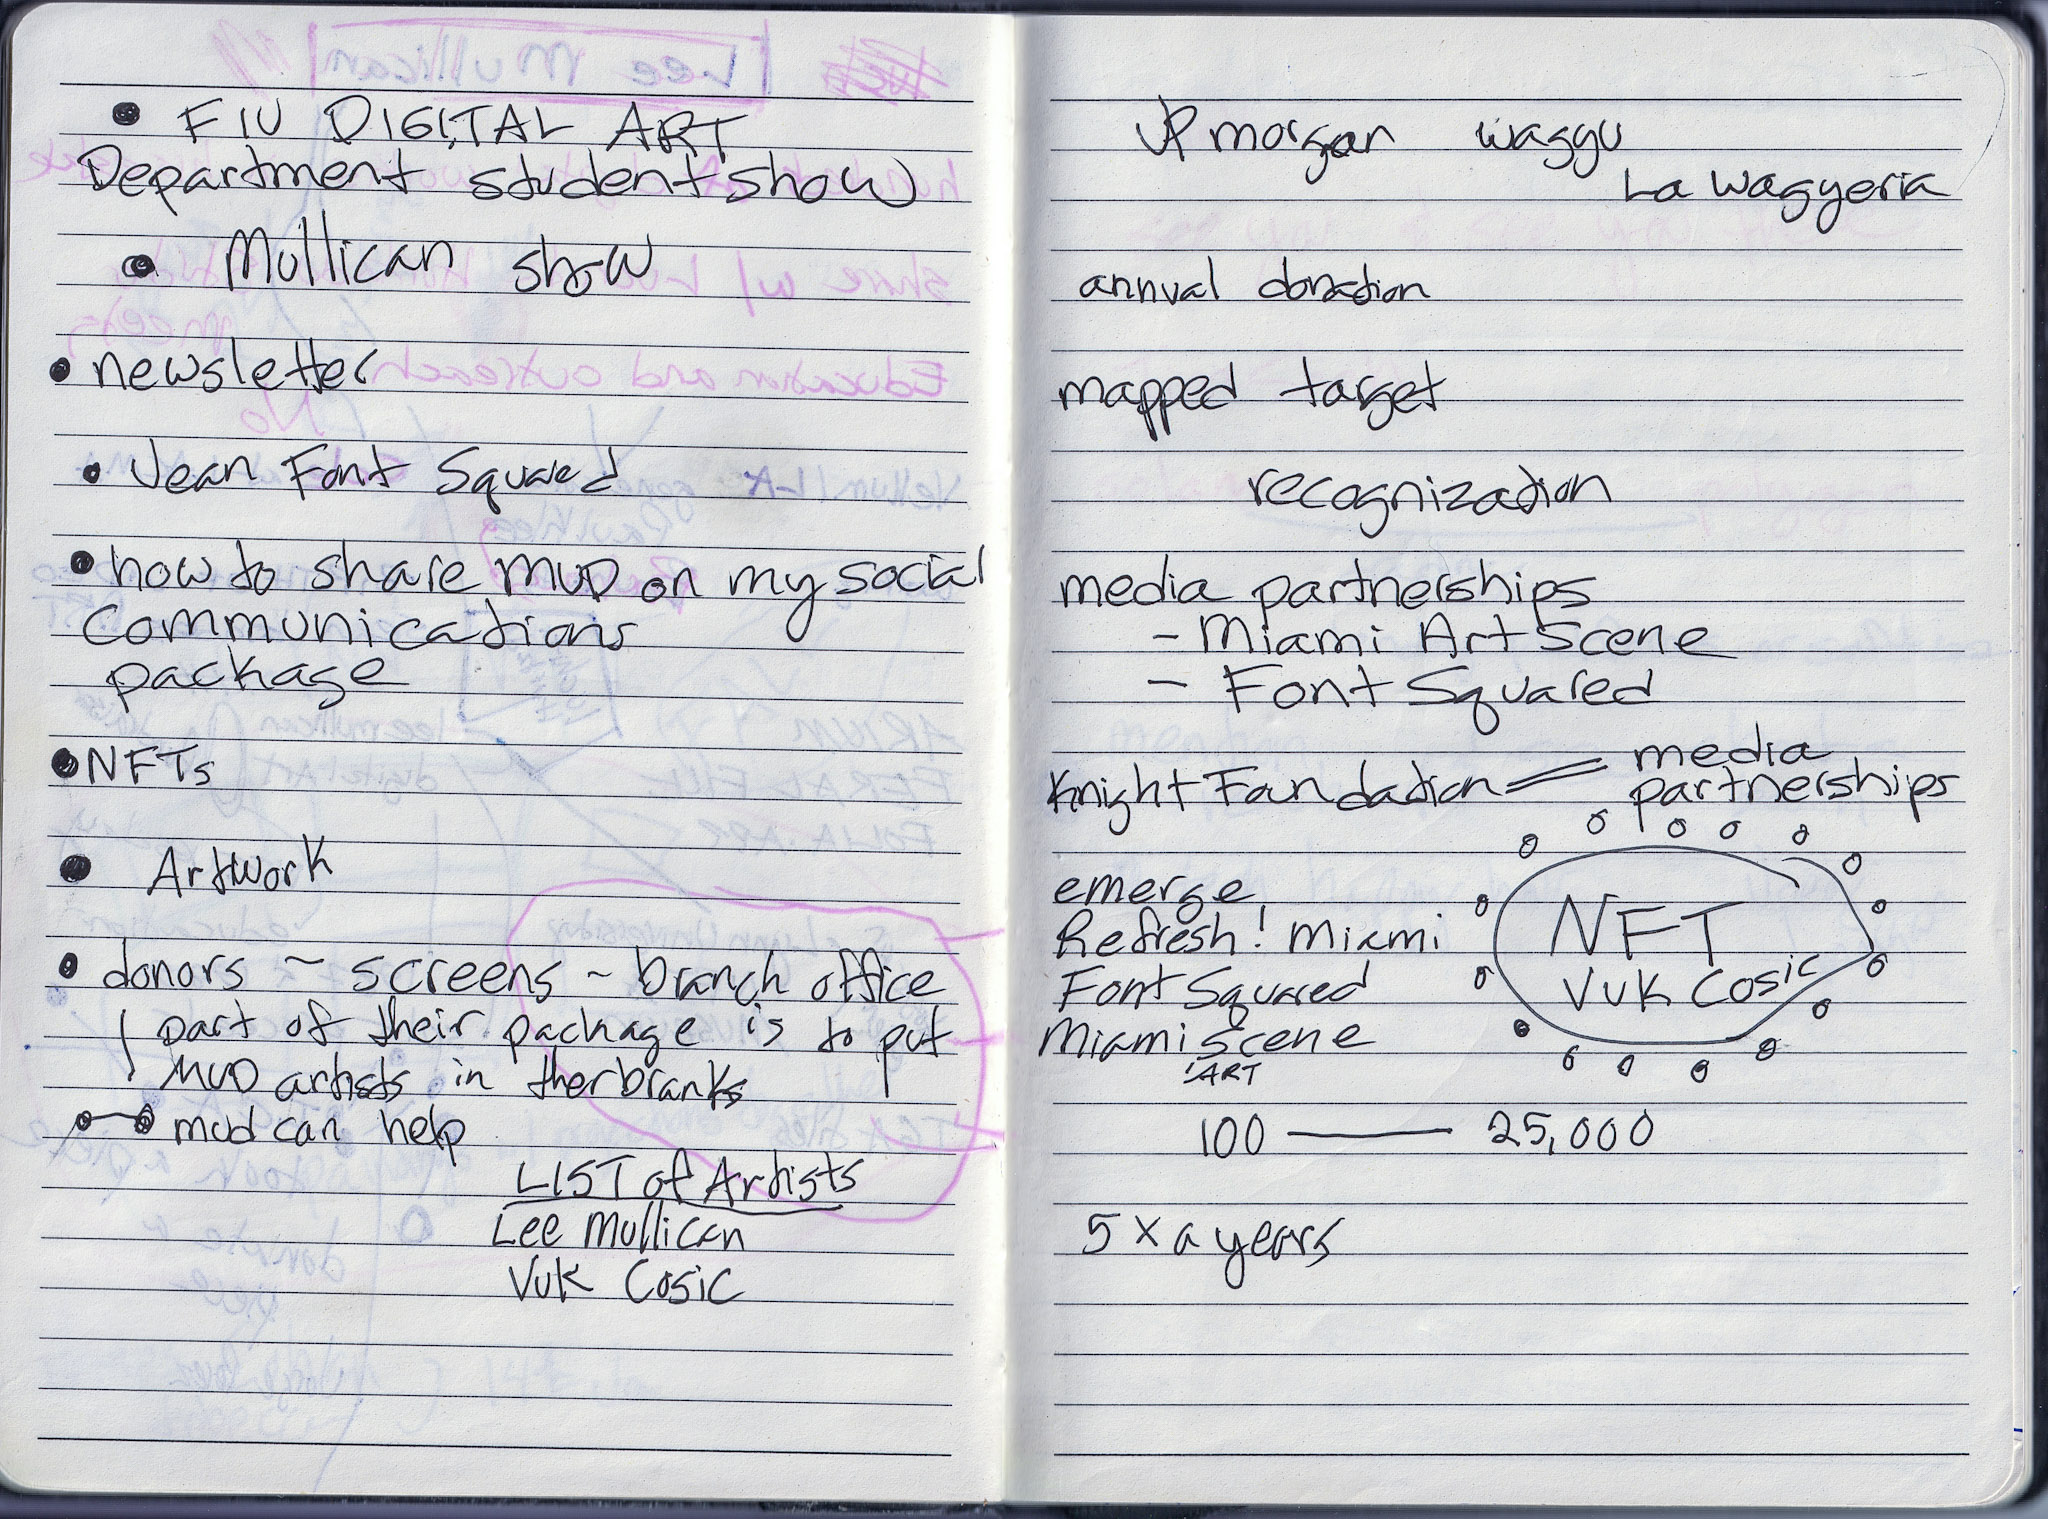 • FIU DIGITAL ART
Department student show
• Mullican show
• newsletter
• Jean Font Squared
• how to share MUD on my social
communications
package
• NFTs
• Artwork
• donors ~ screens ~ branch office
part of their package is to put
MUD artists in their branks
mud can help
LIST of Artists
Lee Mullican
Vuk Cosic
JP morgan waggu
La Waggyeria
annual donation
mapped target
recognization
media partnerships
- Miami Art Scene
- Font Squared
Knight Foundation = media
partnerships
emerge
Refresh! Miami
Font Squared
Miami scene
ART
NFT
Vuk Cosic
100 — 25,000
5 x a years